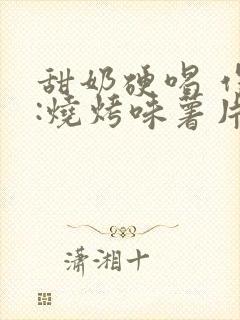 甜奶硬唱
:燒烤味薯片
潇湘十